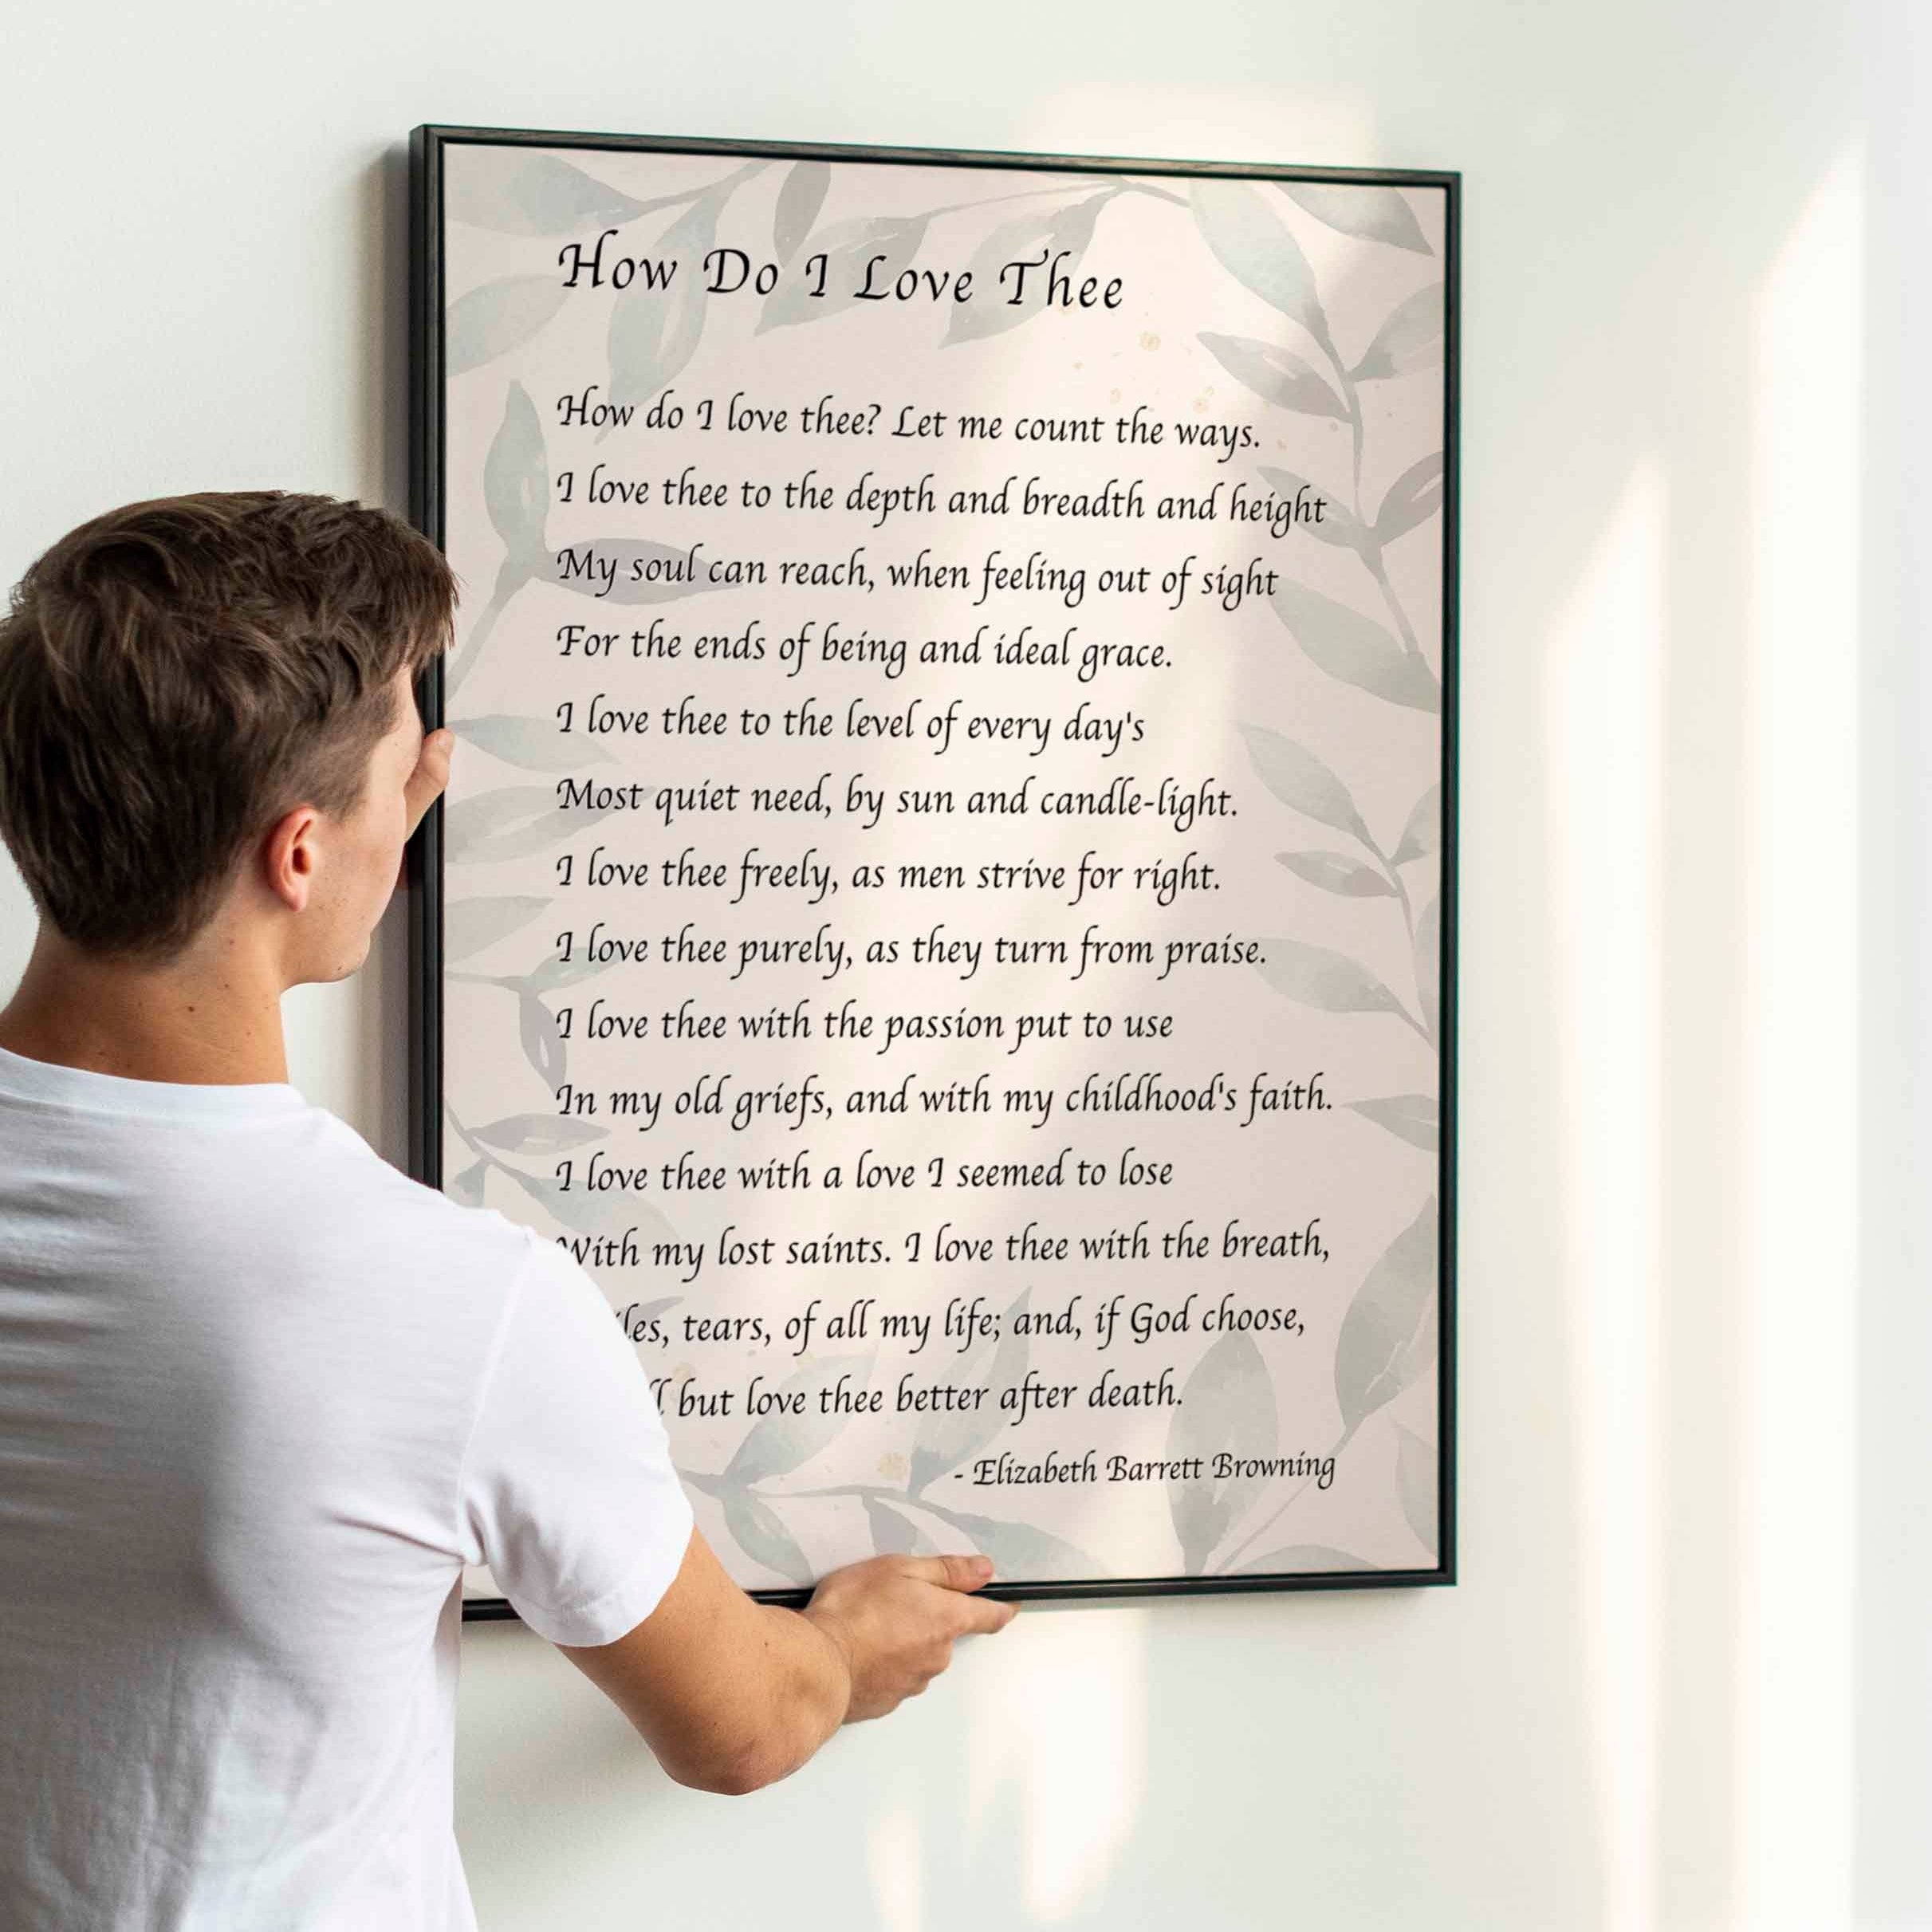 How Do I Love Thee
How do I love thee? Let me count the ways.
I love thee to the depth and breadth and height
My soul can reach, when feeling out of sight
For the ends of being and ideal grace.
I love thee to the level of every day's
Most quiet need, by sun and candle-light.
I love thee freely, as men strive for right.
I love thee purely, as they turn from praise.
I love thee with the passion put to use
In my old griefs, and with my childhood's faith.
I love thee with a love I seemed to lose
With my lost saints. I love thee with the breath,
tears, of all my life; and, if God choose,
but love thee better after death.
- Elizabeth Barrett Browning